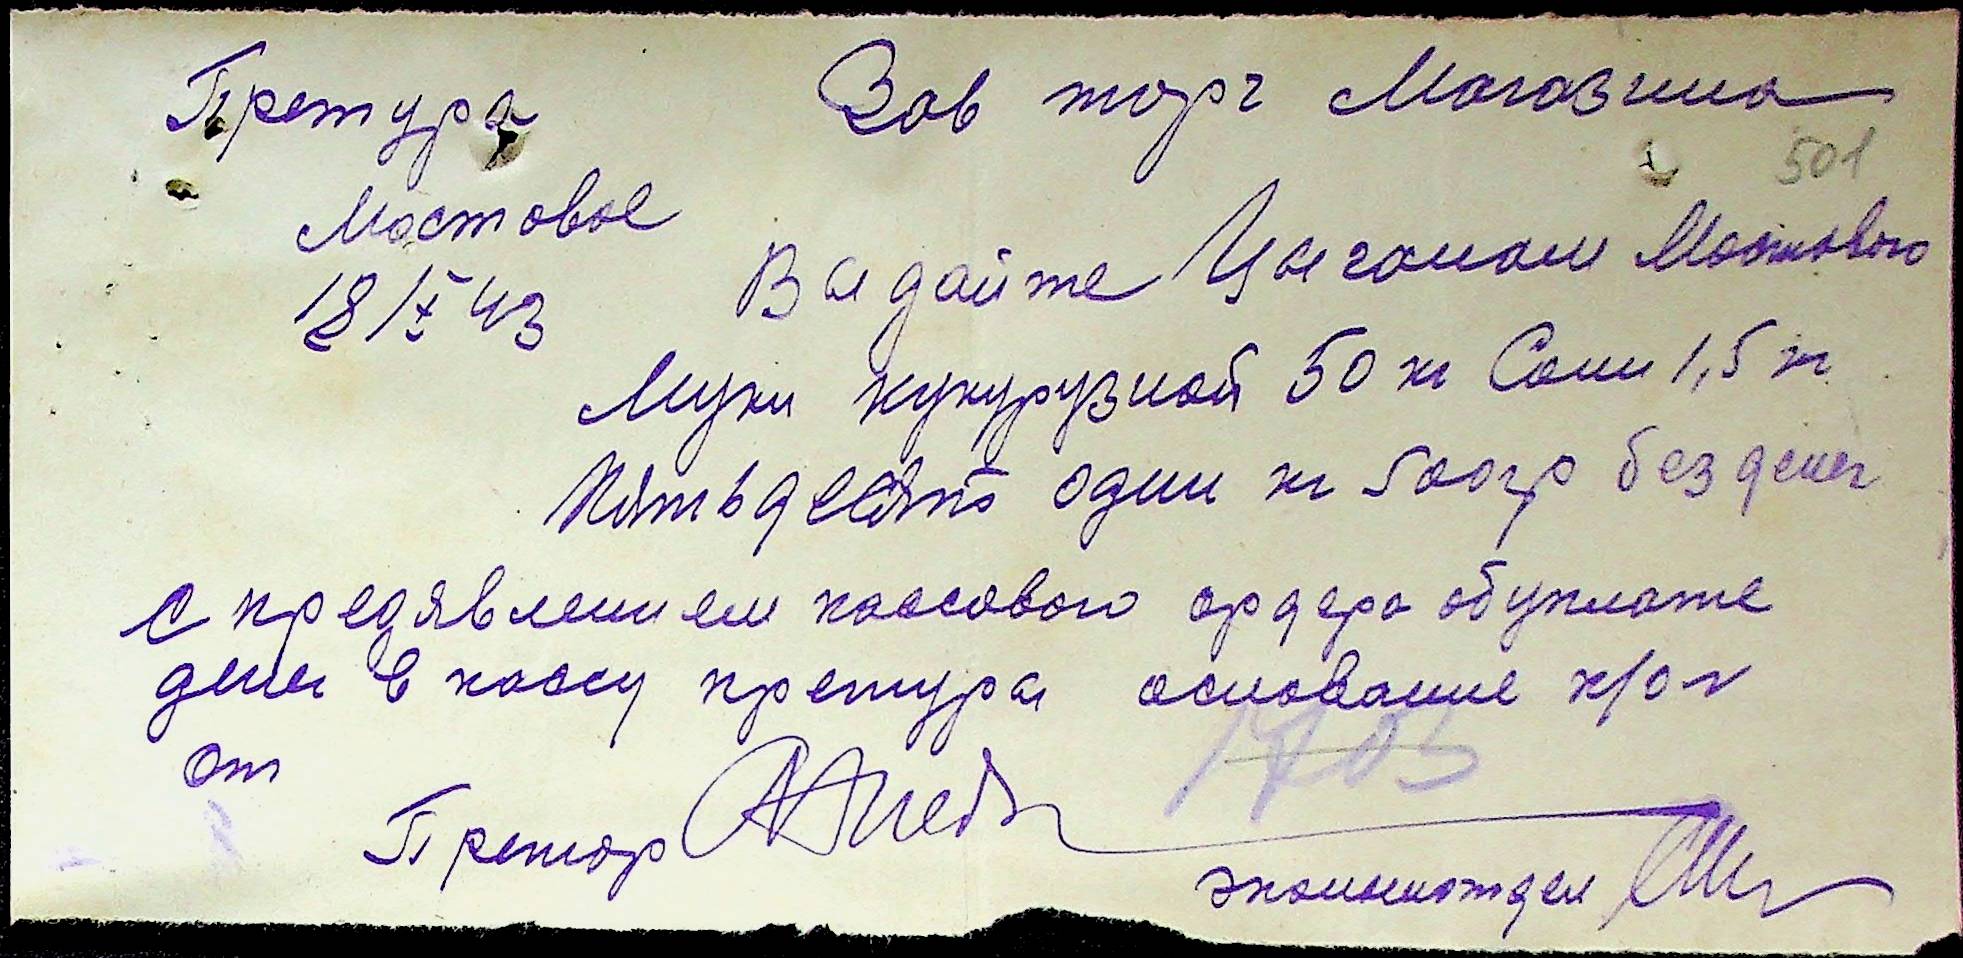 Претура Зав торг Магазина
501
Мостовое
18/X 43 Выдайте Цыганам Мостового
Муки кукурузной 50 кг Соли 1,5 кг
Пятьдесять один кг 500 гр без денег
с предявлением кассового ордера об уплате
денег в кассу претуры основание к/о
от
Претор
экономотдел